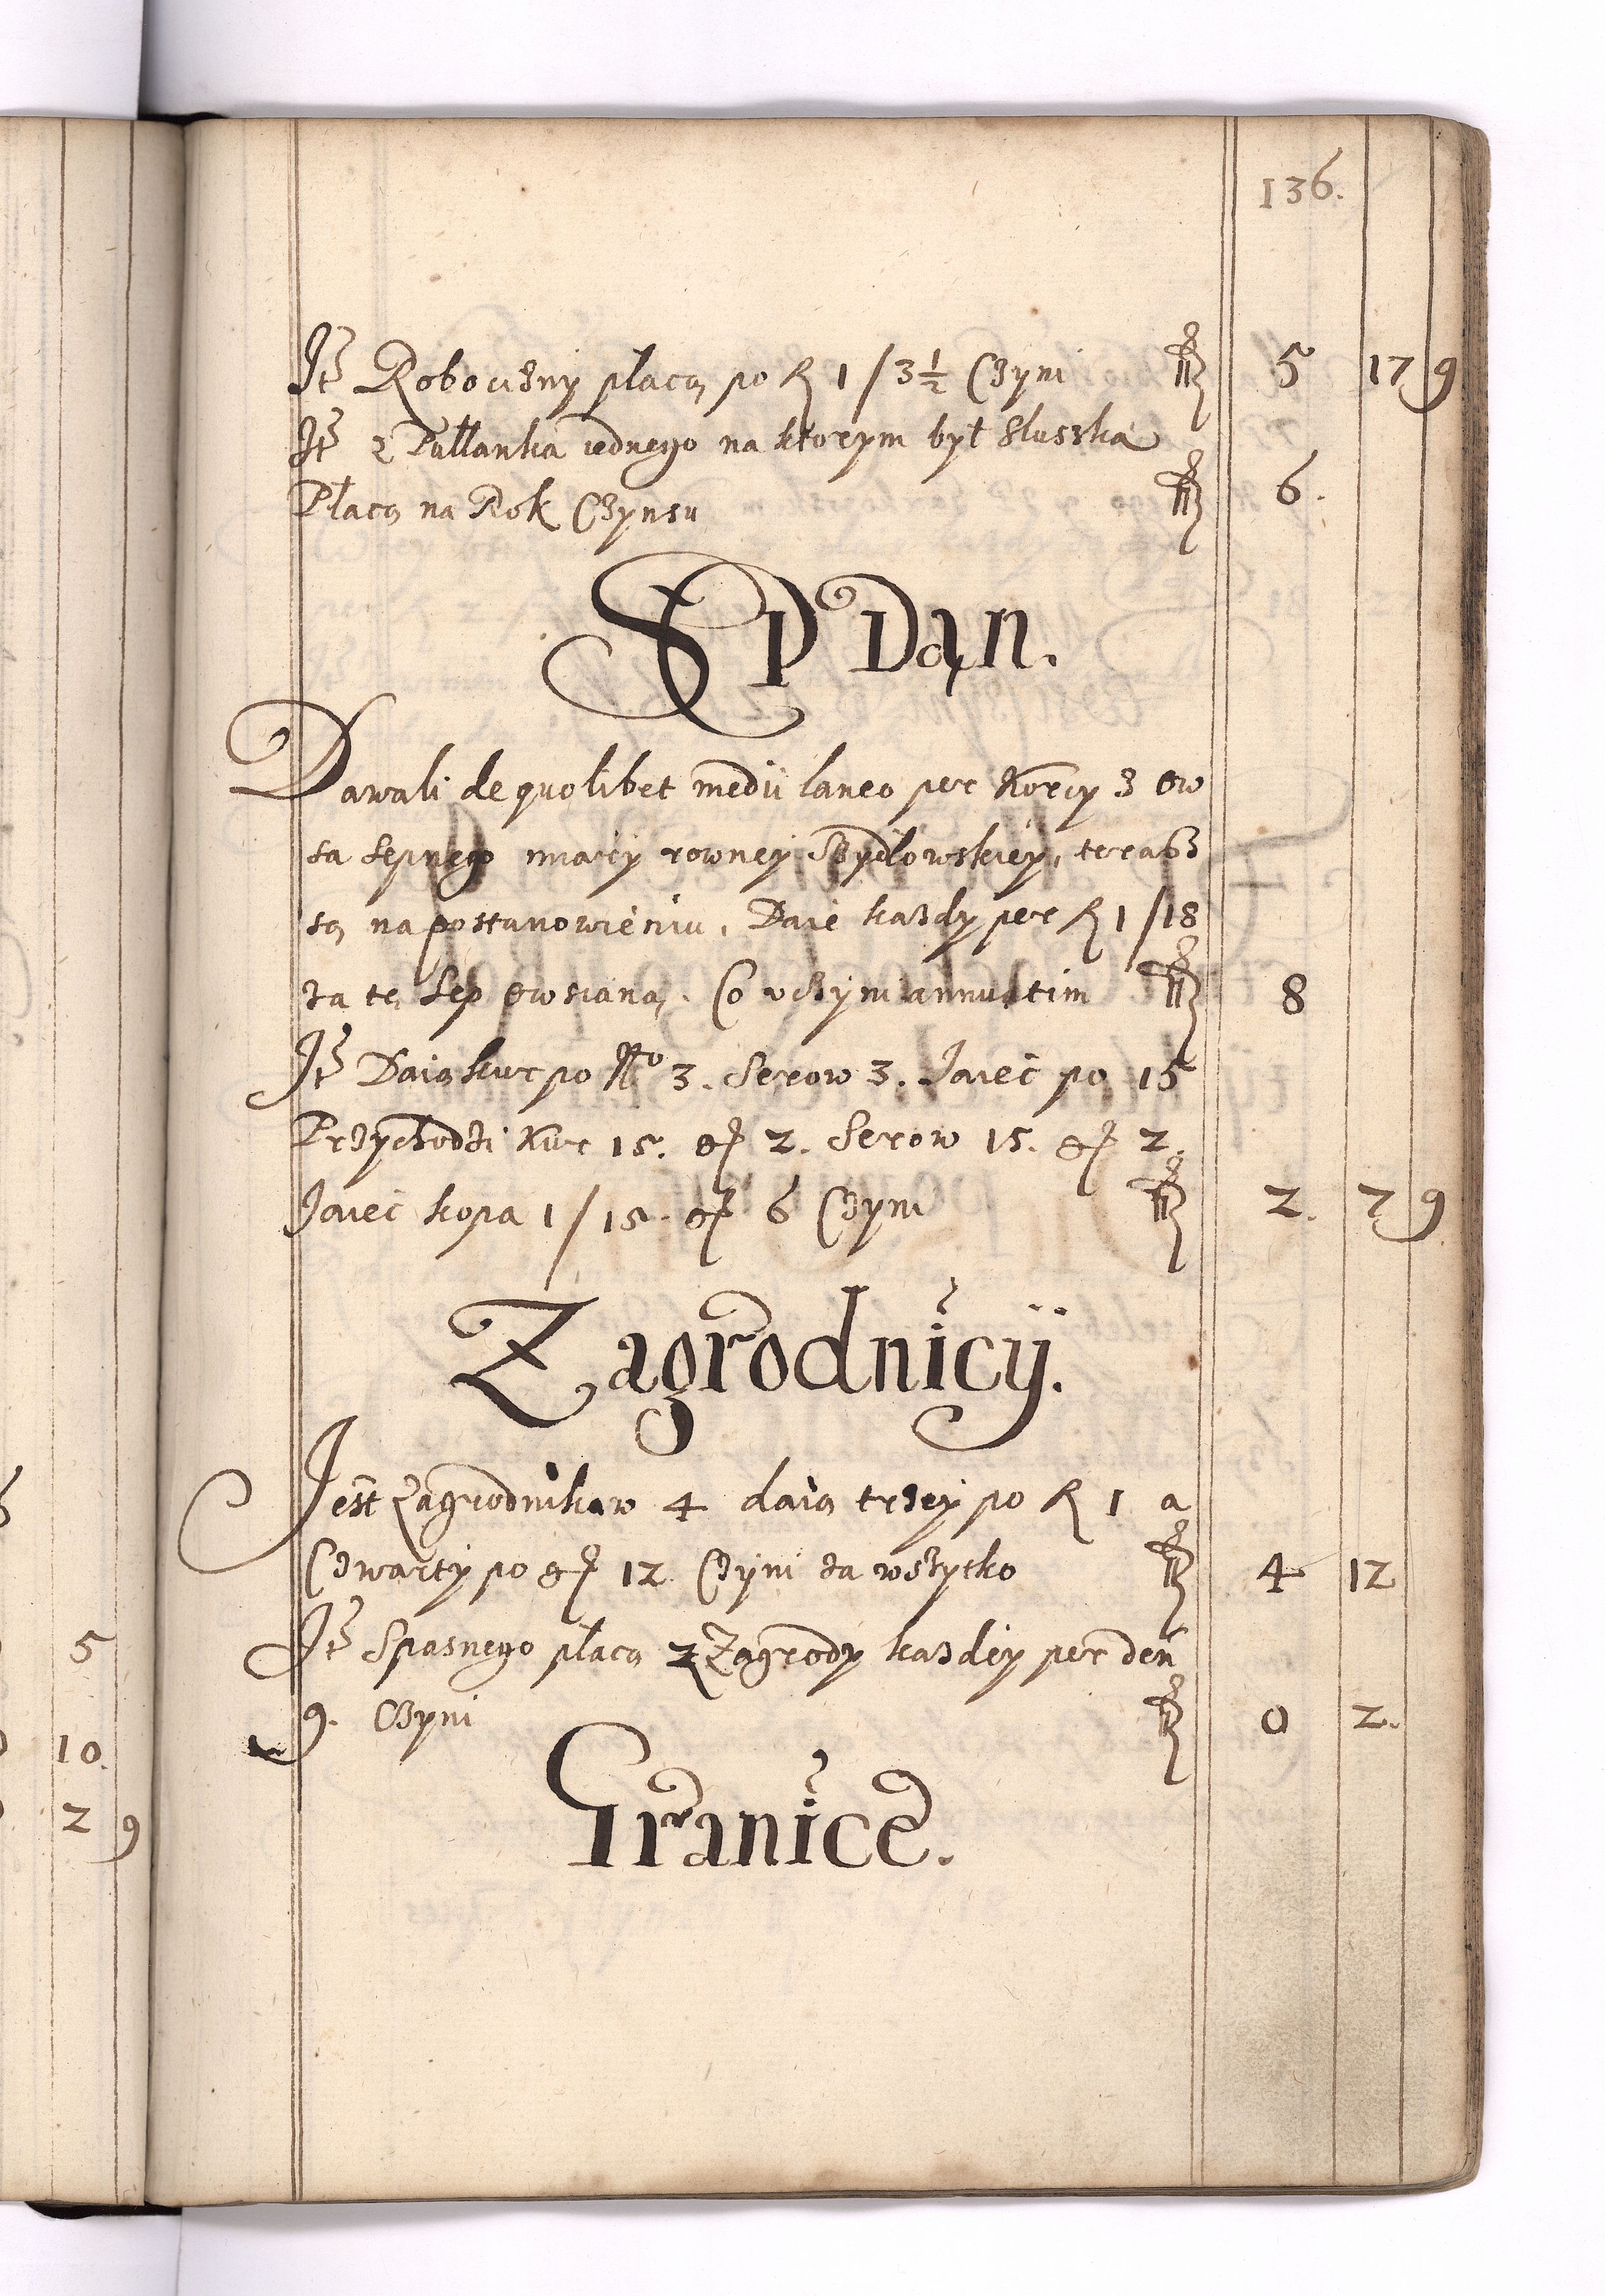 136.
Jtē Robocizny płacą po fl 1/3½ Czyni fl 5 17 9
Jtē z Pułłanka iednego na ktorym był Sluszka
Płacą na Rok Czynsu fl 6.
SEP Dan.
Dawali de quolibet medii laneo per Korcy 3 ow
sa sepnego miary rowney Szydłowskiey, terasz
są na postanowieniu, Daie kazdy per fl 1/18
za tę Sep owsianą. Co vczyni annuatim fl 8
Jtē Daią kur po No 3. Serow 3. Jaiec po 15
Przychodzi Kur 15. gr 2. Serow 15. gr 2.
Jaiec kopa 1/15. gr 6 Czyni fl 2. 7 9
Zagrodnicy.
Jest Zagrodnikow 4 daią trzey po fl 1 a
Czwarty po gr 12 Czyni za wszytko fl 4 12
Jtē Spasnego płacą z Zagrody kazdey per den
9. Czyni fl 0 2.
Granice.
5
10.
2 9